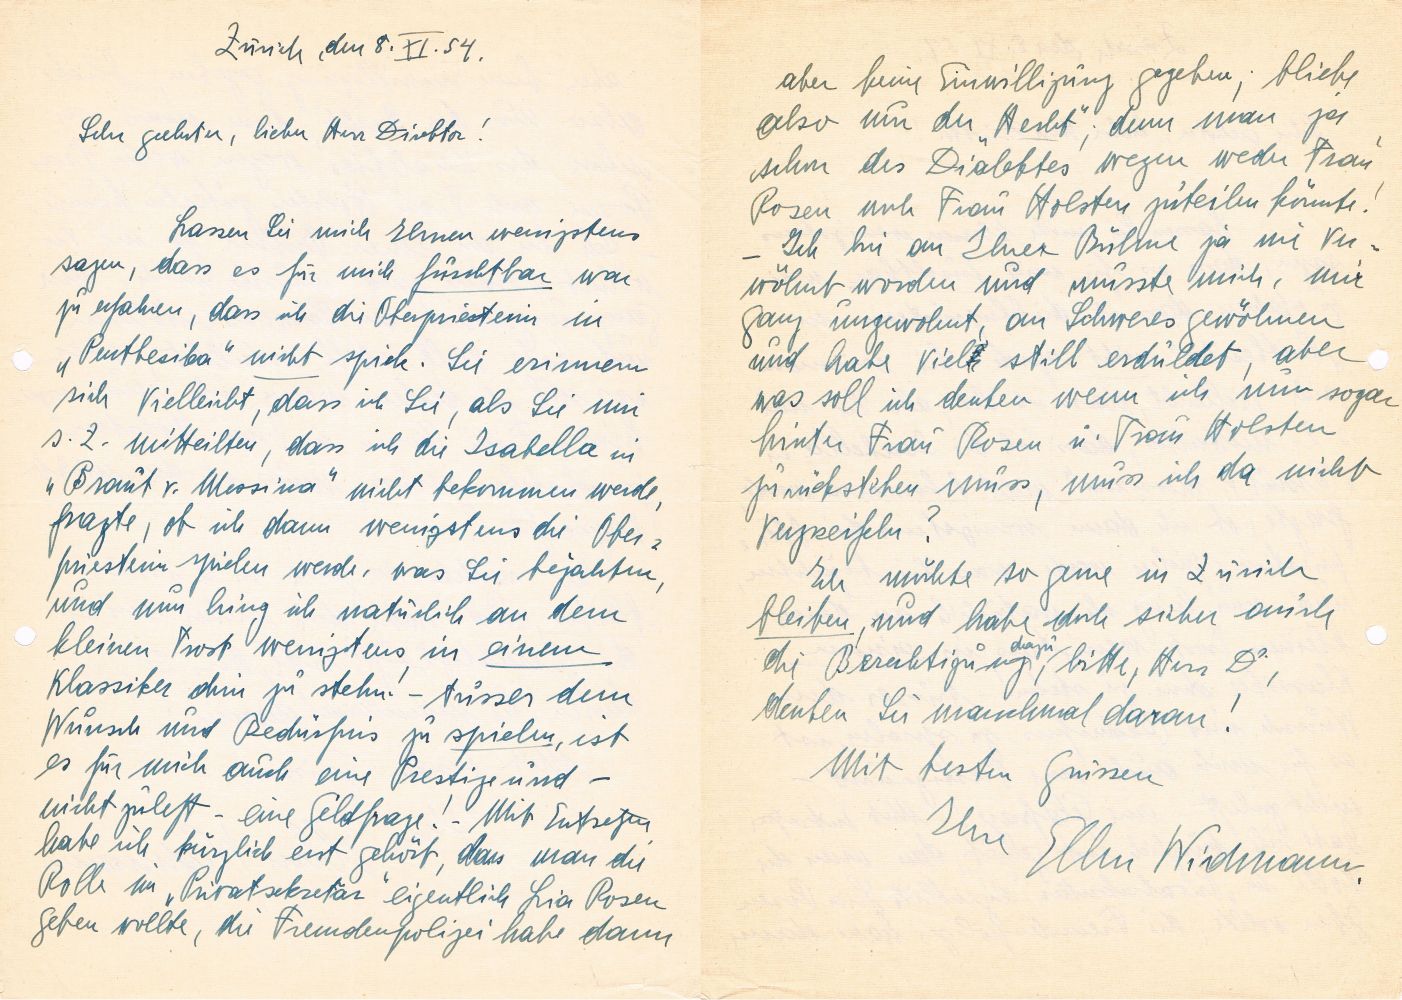 Zürich, den 8. XI. 54.
Sehr geehrter, lieber Herr Direktor!
Lassen Sie mich Ihnen wenigstens
sagen, dass es für mich furchtbar war
zu erfahren, dass ich die Oberpriesterin in
„Penthesilea" nicht spiele. Sie erinnern
sich vielleicht, dass ich Sie, als Sie mir
s. Z. mitteilten, dass ich die Isabella in
„Braut v. Messina" nicht bekommen werde,
fragte, ob ich dann wenigstens die Ober-
priesterin spielen werde, was Sie bejahten,
und nun hing ich natürlich an dem
kleinen Trost wenigstens in einem
Klassiker drin zu stehn! – Ausser dem
Wunsch und Bedürfnis zu spielen, ist
es für mich auch eine Prestige und –
nicht zuletzt – eine Geldfrage! – Mit Entsetzen
habe ich kürzlich erst gehört, dass man die
Rolle im „Privatsekretär" eigentlich Lia Rosen
geben wollte, die Fremdenpolizei habe dann
aber keine Einwilligung gegeben; bliebe
also nur der „Hecht", denn man ja
schon des Diabetes wegen weder Frau
Rosen noch Frau Holsten zuteilen könnte!
– Ich bin an Ihrer Bühne ja nie ver-
wöhnt worden und musste mich, mir
ganz ungewohnt, an Schweres gewöhnen
und habe viel still erduldet, aber
was soll ich denken wenn ich nun sogar
hinter Frau Rosen u. Frau Holsten
zurückstehen muss, muss ich da nicht
verzweifeln?
Ich möchte so gerne in Zürich
bleiben, und habe doch sicher auch
die Berechtigung dazu, bitte, Herr D.,
denken Sie manchmal daran!
Mit besten Grüssen
Ihre Ellen Widmann.